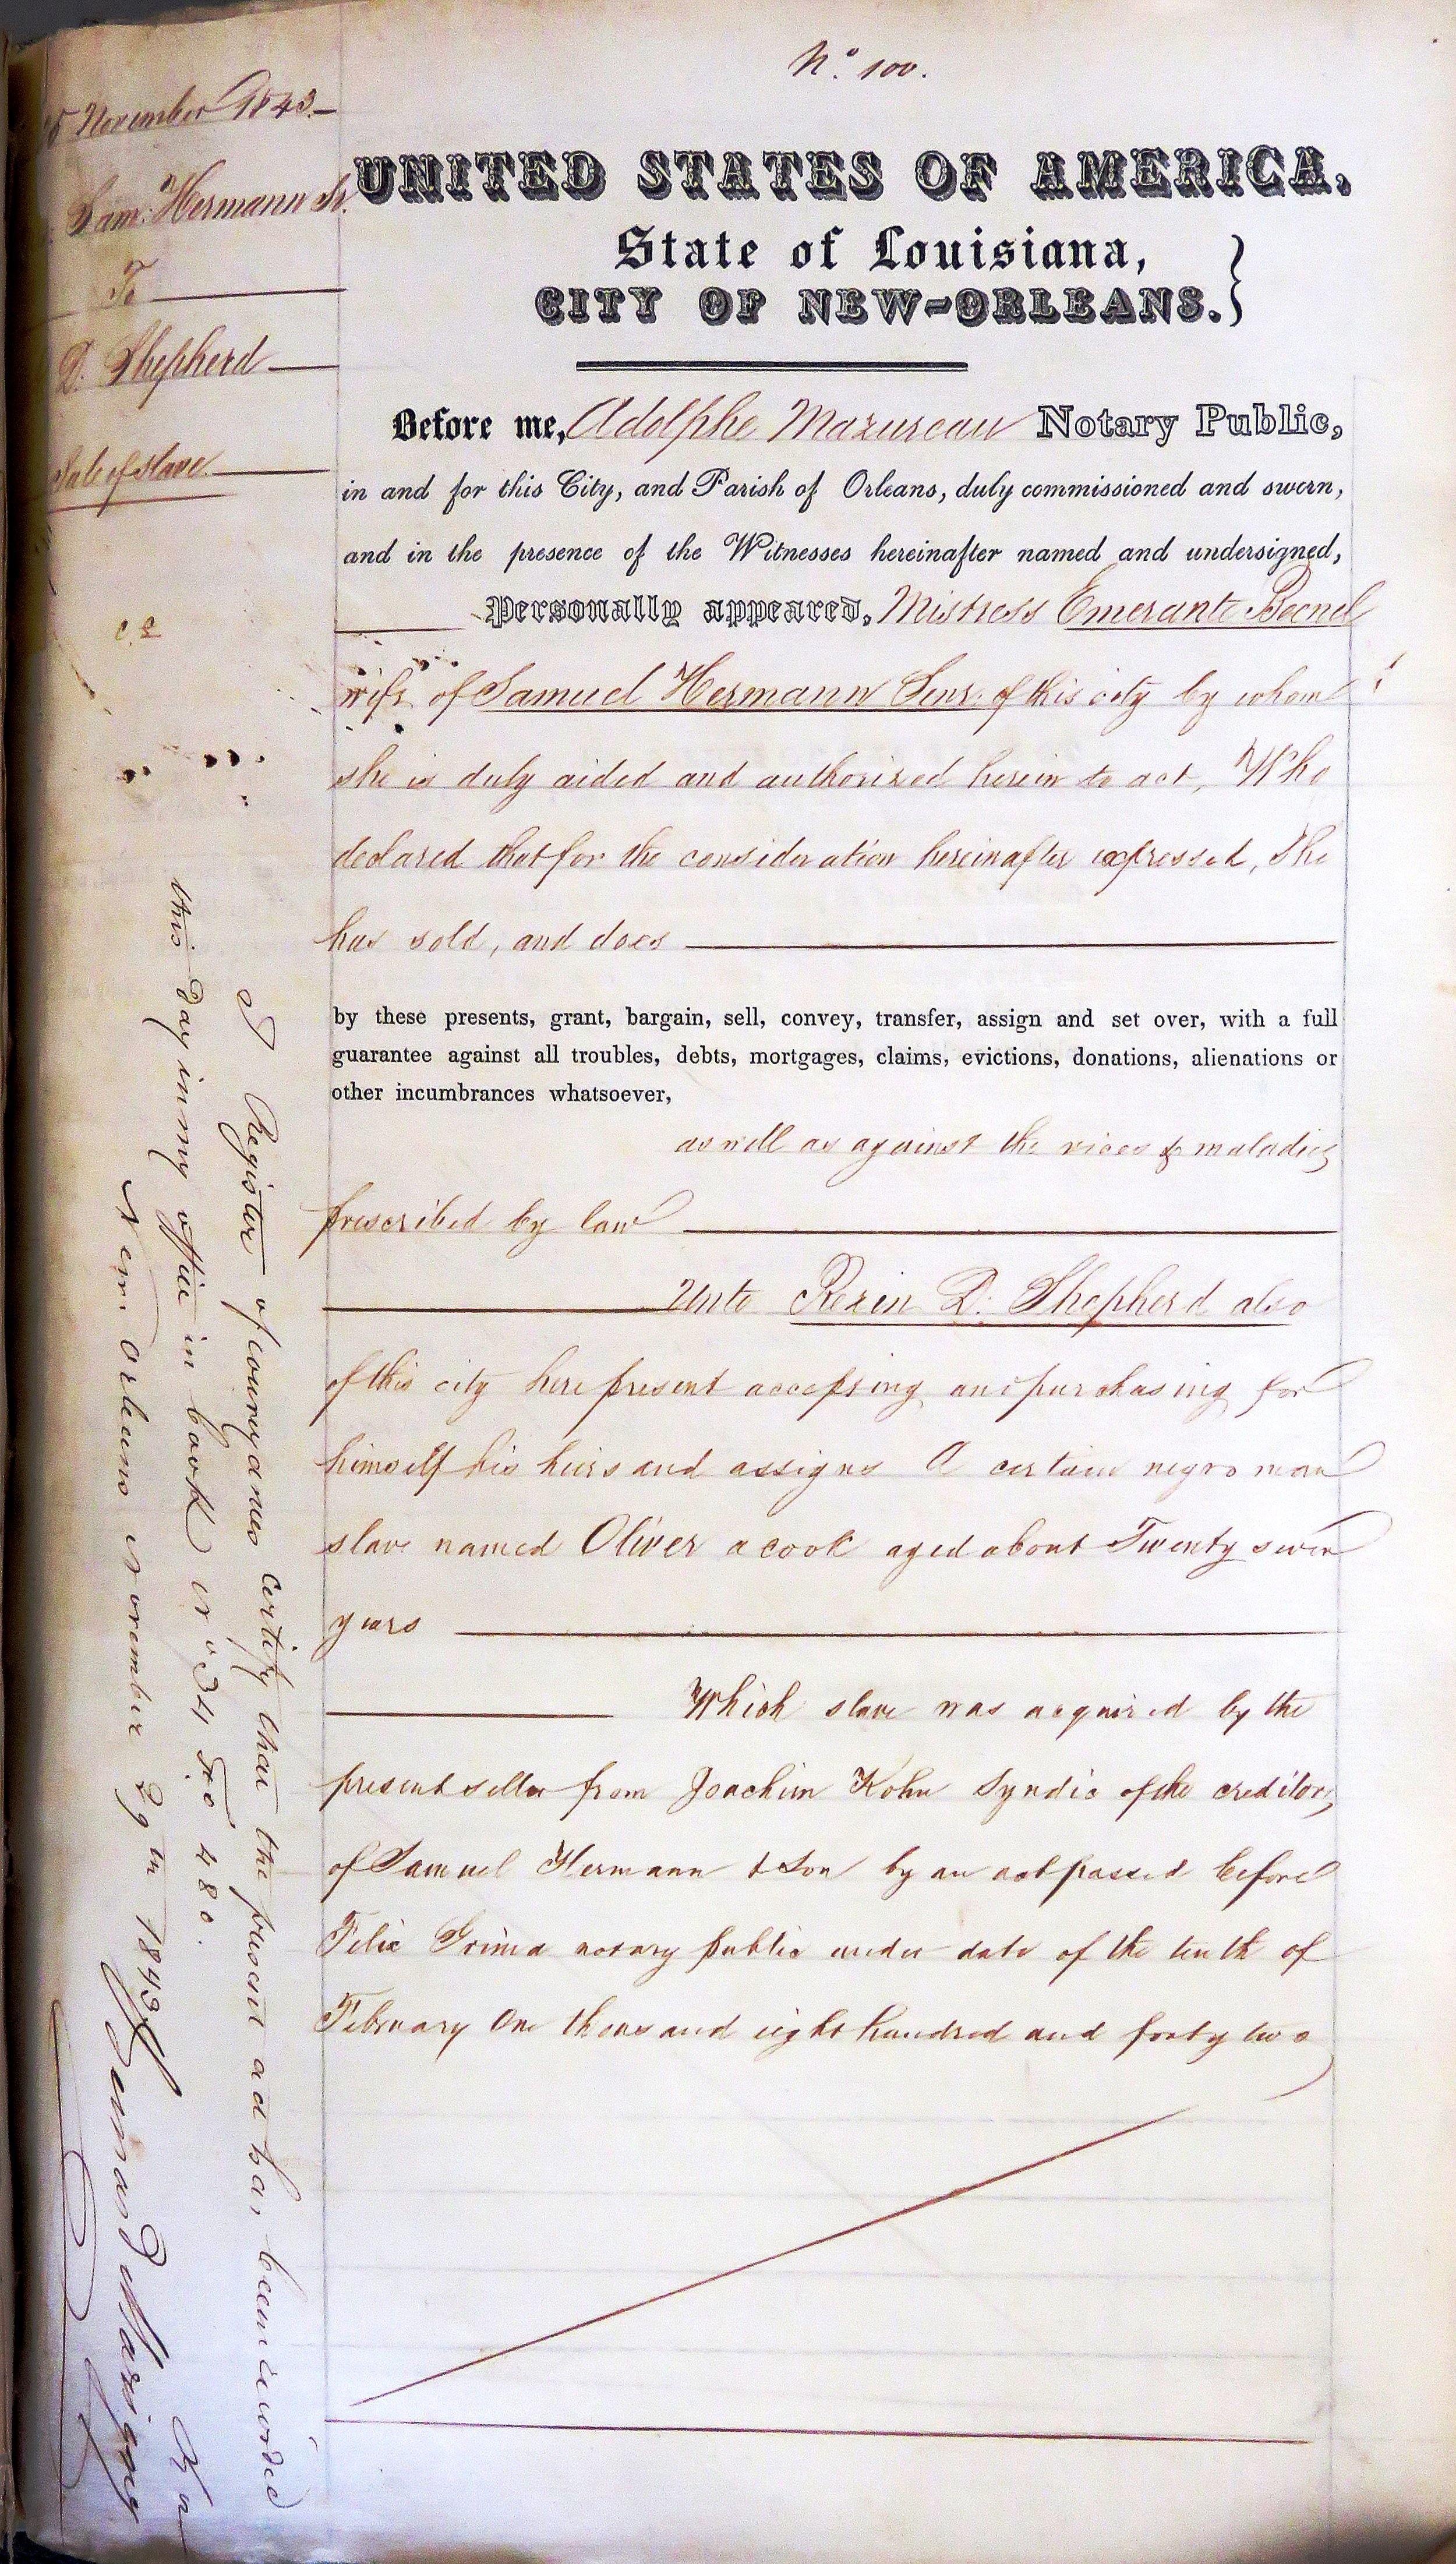 N.° 100.
November 1843.
Sam. Hermann Sr.
To
D. Shepherd
Sale of slave.
UNITED STATES OF AMERICA,
State of Louisiana,
CITY OF NEW-ORLEANS.
Before me, Adolphe Mazureau Notary Public,
in and for this City, and Parish of Orleans, duly commissioned and sworn,
and in the presence of the Witnesses hereinafter named and undersigned,
Personally appeared, Mistress Emerante Becnel
wife of Samuel Hermann Senr. of this city by whom
she is duly aided and authorized herein to act, Who
declared that for the consideration hereinafter expressed, She
has sold, and does
by these presents, grant, bargain, sell, convey, transfer, assign and set over, with a full
guarantee against all troubles, debts, mortgages, claims, evictions, donations, alienations or
other incumbrances whatsoever,
as well as against the vices & maladies
prescribed by law
Unto Rezin D. Shepherd also
of this city here present accepting and purchasing for
himself his heirs and assigns A certain negro man
slave named Oliver a cook aged about Twenty seven
years
Which slave was acquired by the
present seller from Joachim Kohn Syndic of the creditors
of Samuel Hermann & Son by an act passed before
Felix Grima notary public under date of the tenth of
February One thousand eight hundred and forty two
I Register of conveyances certify that the present act has been recorded
this day in my office in book n° 34 f.o 480.
New Orleans November 29th 1843
Armand Marigny